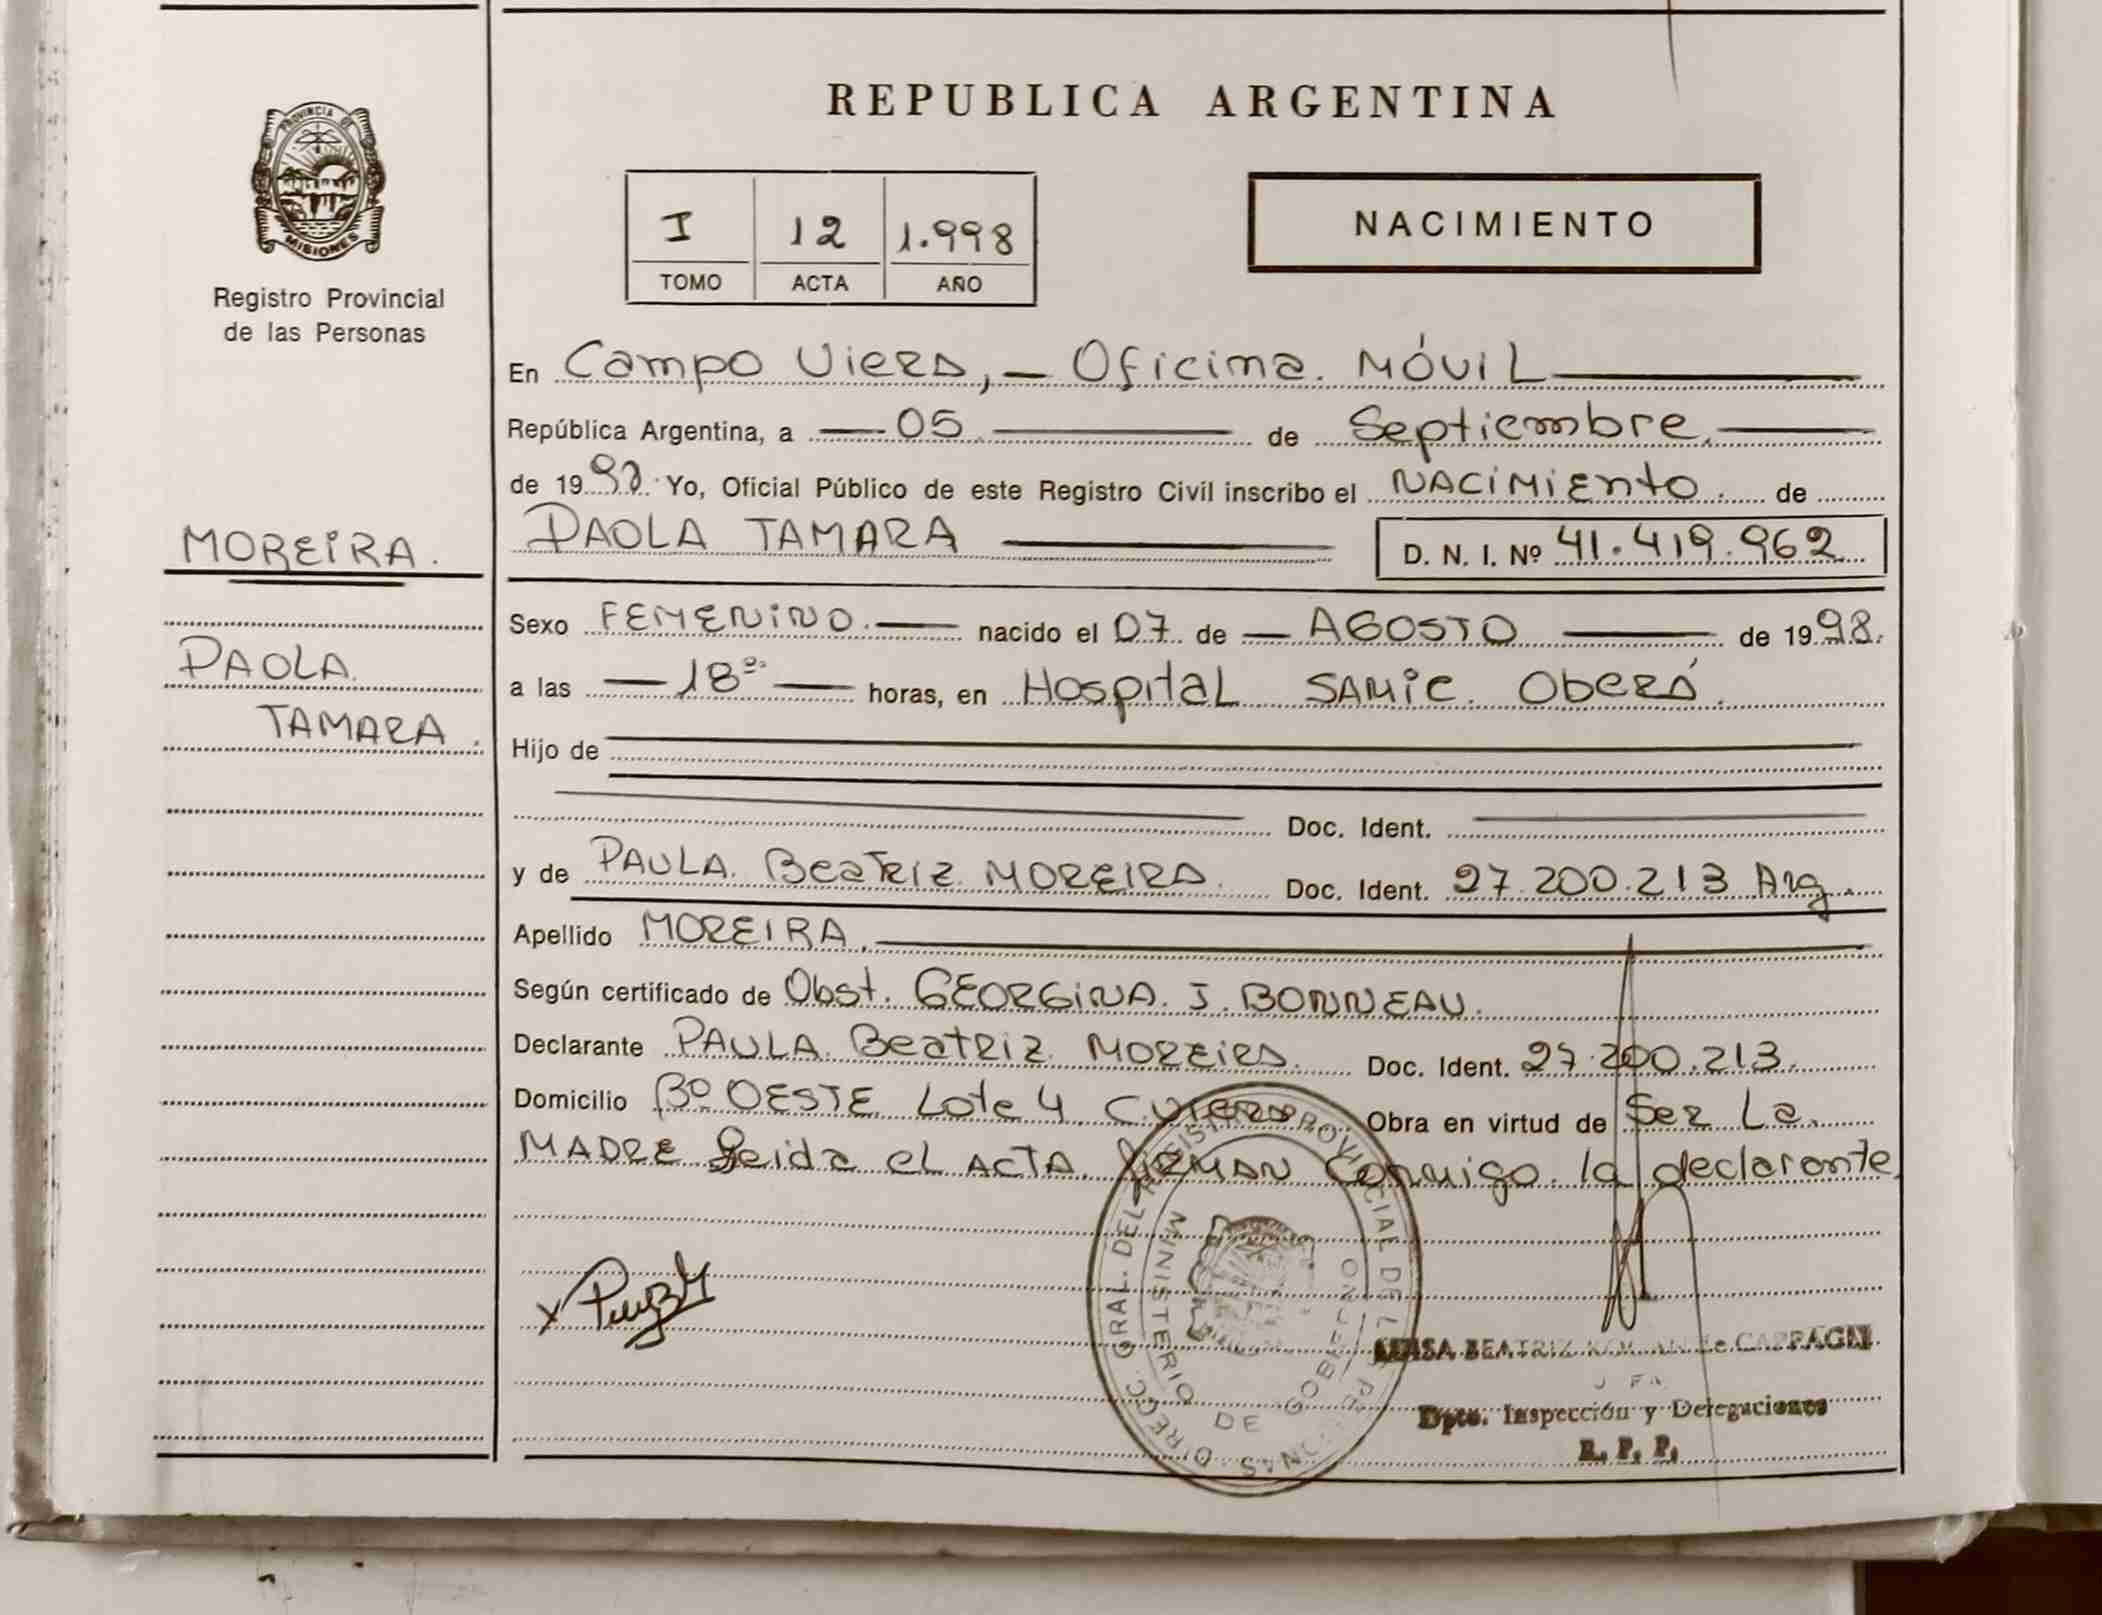 REPUBLICA ARGENTINA
PROVINCIA DE
MISIONES
Registro Provincial
de las Personas
I 12 1.998
TOMO ACTA AÑO
NACIMIENTO
En Campo Viera, Oficina Móvil
República Argentina, a 05 de Septiembre
de 1998 Yo, Oficial Público de este Registro Civil inscribo el NACIMIENTO de
MOREIRA.
PAOLA TAMARA D. N. I. Nº 41.419.962
Sexo FEMENINO nacido el 07 de AGOSTO de 1998.
PAOLA
TAMARA.
a las 18 horas, en Hospital SAMIC. Oberá.
Hijo de
Doc. Ident.
y de PAULA Beatriz MOREIRA. Doc. Ident. 27.200.213 Arg.
Apellido MOREIRA.
Según certificado de Obst. GEORGINA. J. BONNEAU.
Declarante PAULA Beatriz MOREIRA Doc. Ident. 27.200.213.
Domicilio Bº OESTE Lote 4 C. Viera Obra en virtud de Ser La
MADRE Leida el ACTA. Firman conmigo la declarante
DIRECC. GRAL. DEL REGISTRO PROVINCIAL DE LAS PERSONAS
MINISTERIO DE GOBIERNO
BEATRIZ de
Dpto. Inspección y Delegaciones
R. P. P.